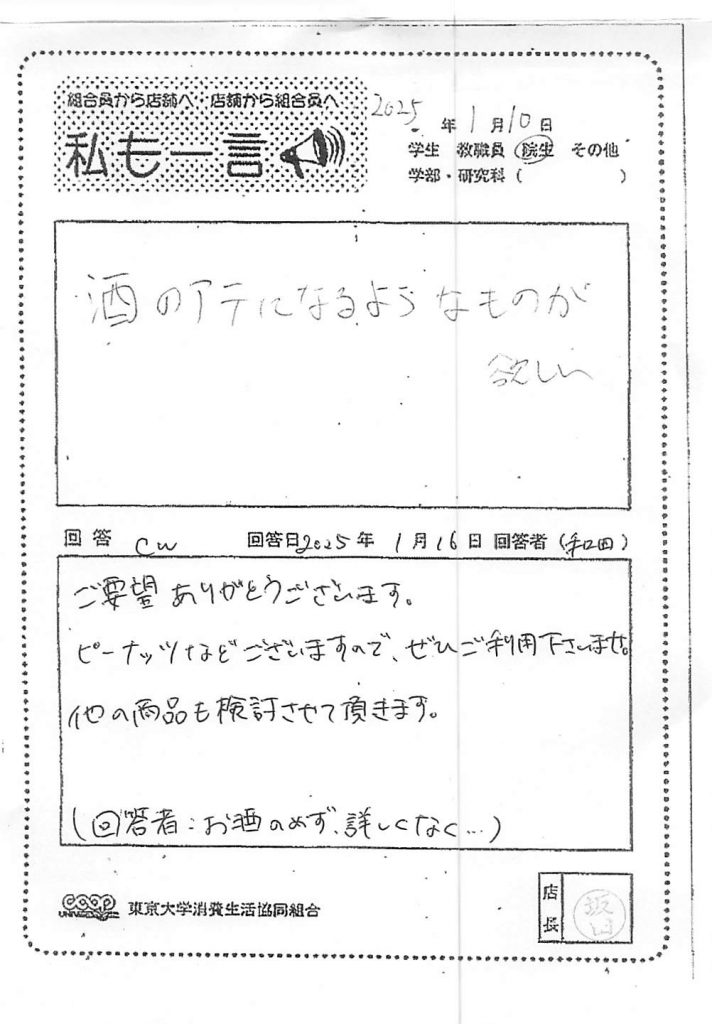 組合員から店舗へ 店舗から組合員へ
私も一言
2025年 1月10日
学生 教職員 院生 その他
学部・研究科( )
酒のアテになるようなものが
欲しい
回答 CW 回答日2025年 1月16日 回答者(和田)
ご要望ありがとうございます。
ピーナッツなどございますので、ぜひご利用下さいませ。
他の商品も検討させて頂きます。
(回答者:お酒のめず、詳しくなく…)
coop 東京大学消費生活協同組合
店長